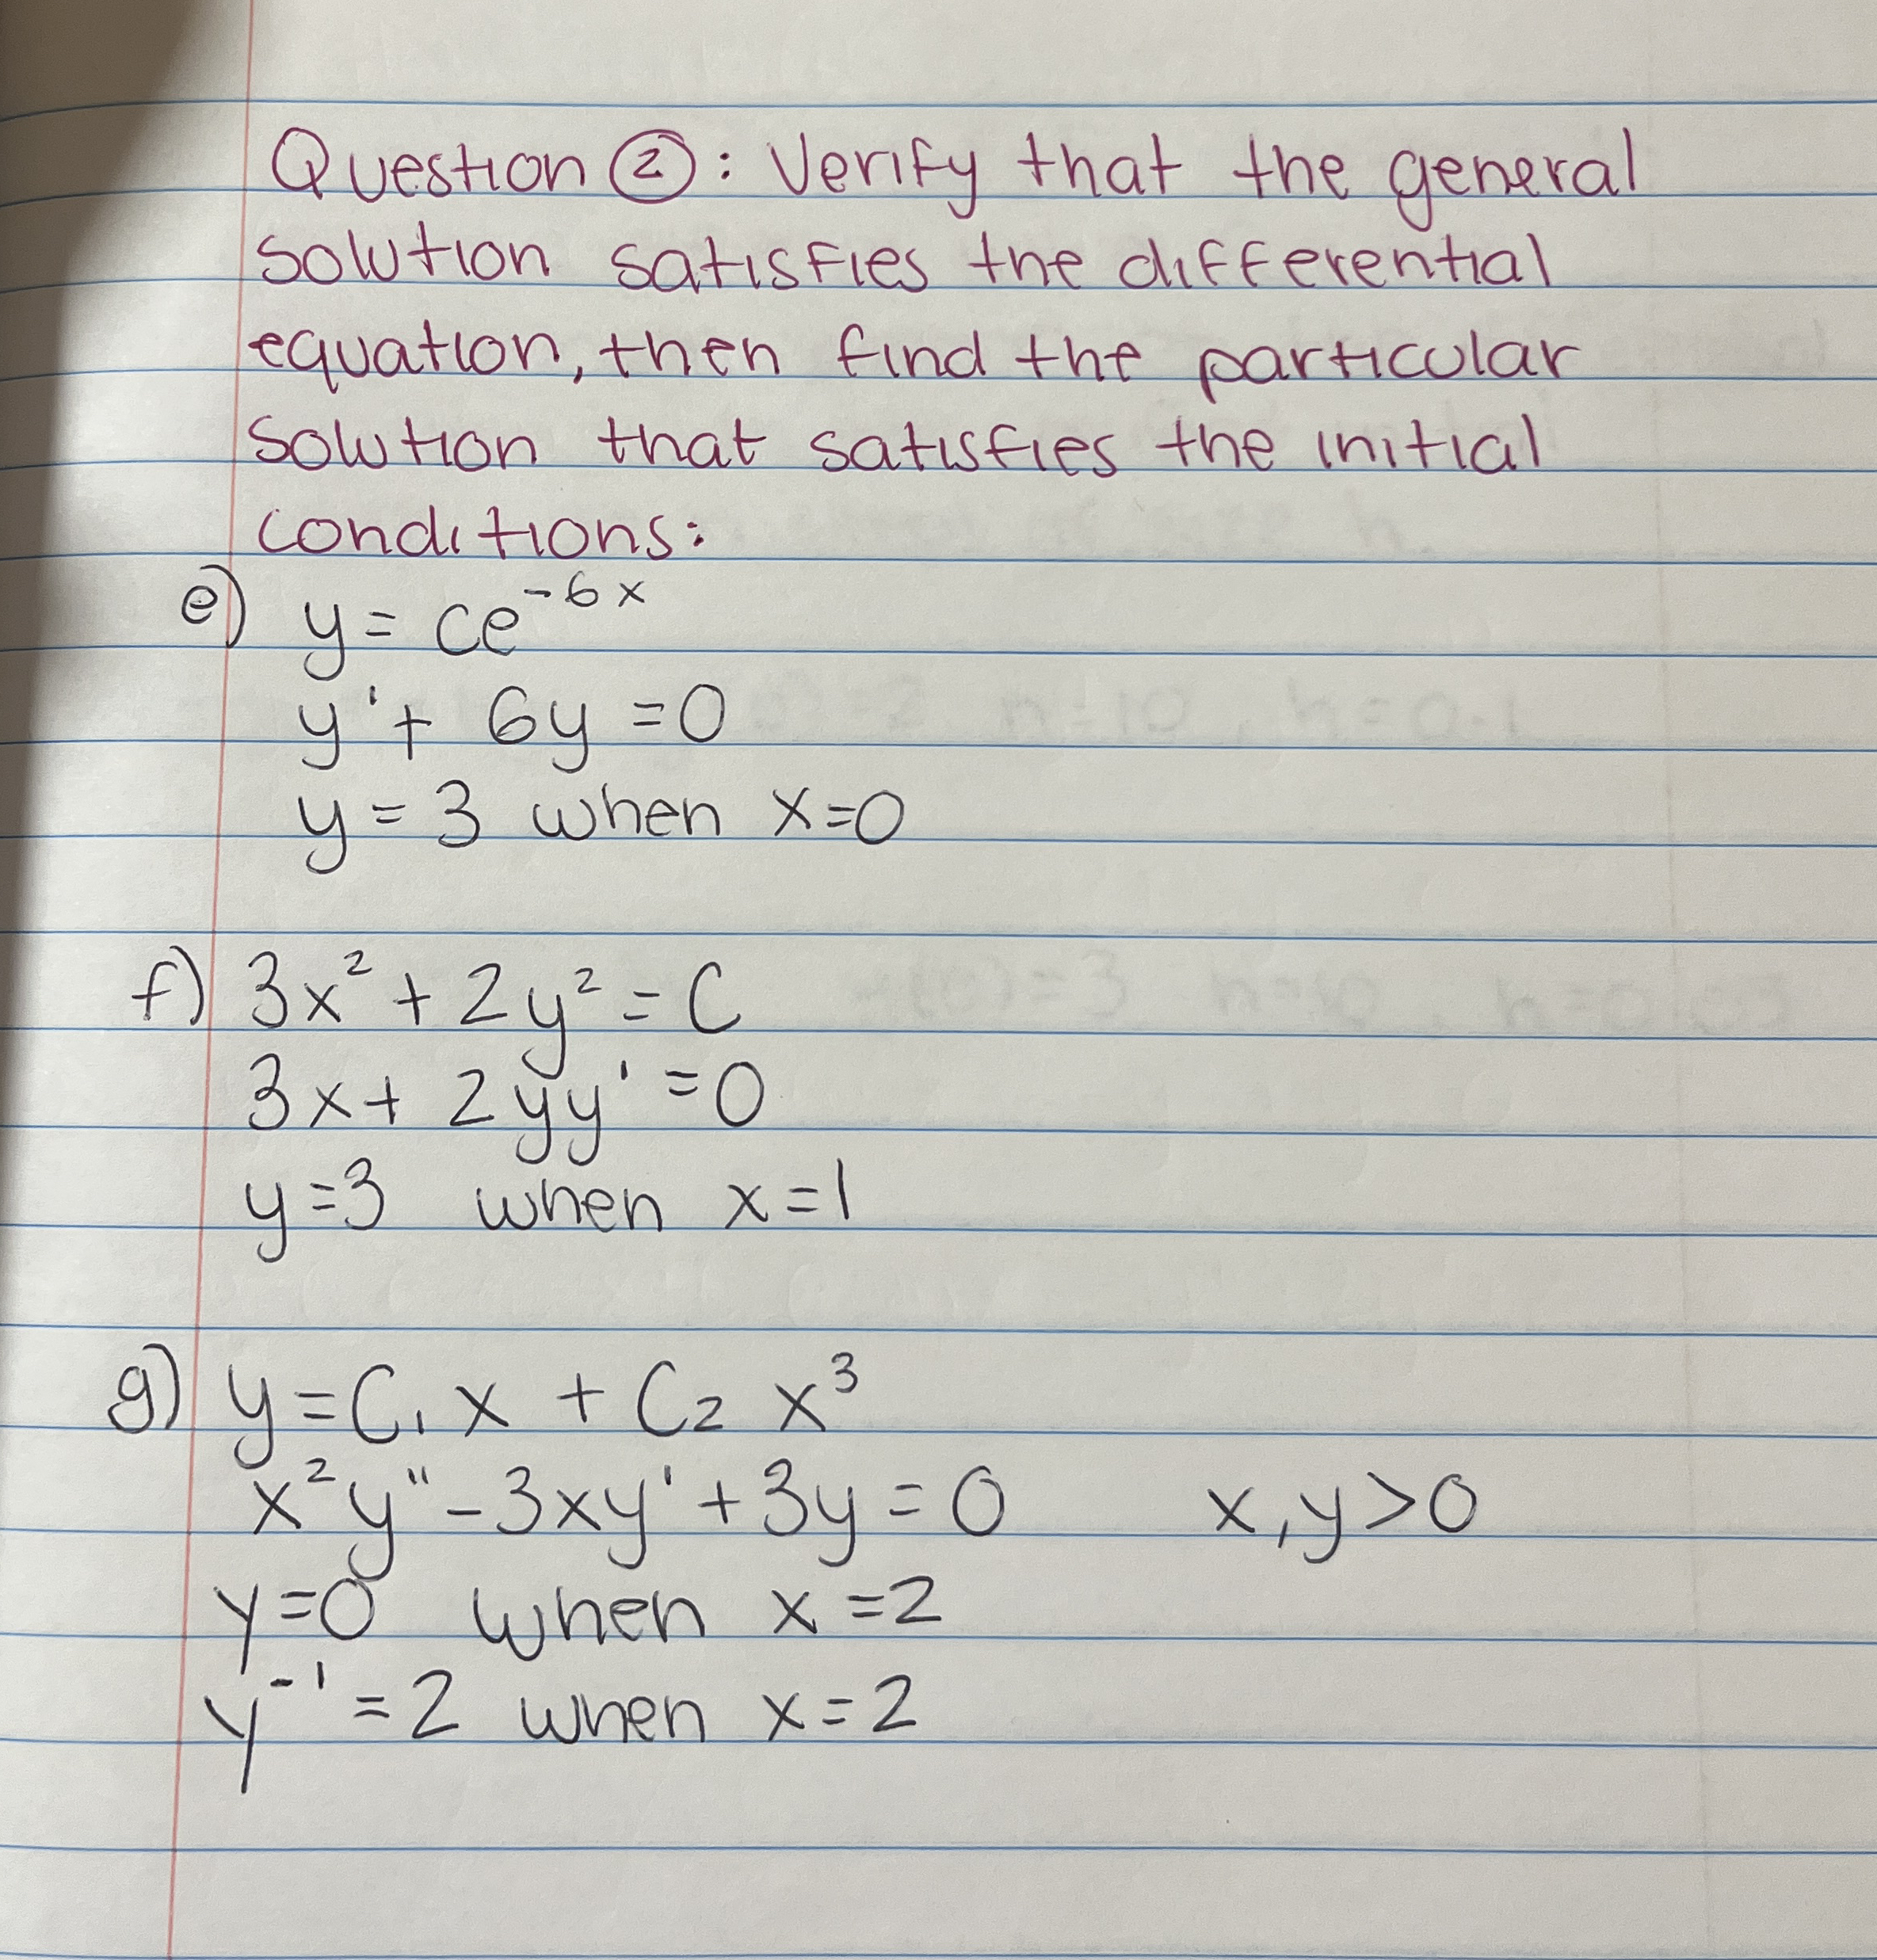 Question ②: Verify that the general
solution satisfies the differential
equation, then find the particular
solution that satisfies the initial
conditions:
e) y = ce⁻⁶ˣ
y' + 6y = 0
y = 3 when x=0
f) 3x² + 2y² = C
3x + 2yy' = 0
y=3 when x=1
g) y = C₁ x + C₂ x³
x²y" - 3xy' + 3y = 0 x,y>0
y=0 when x=2
y⁻¹ = 2 when x=2